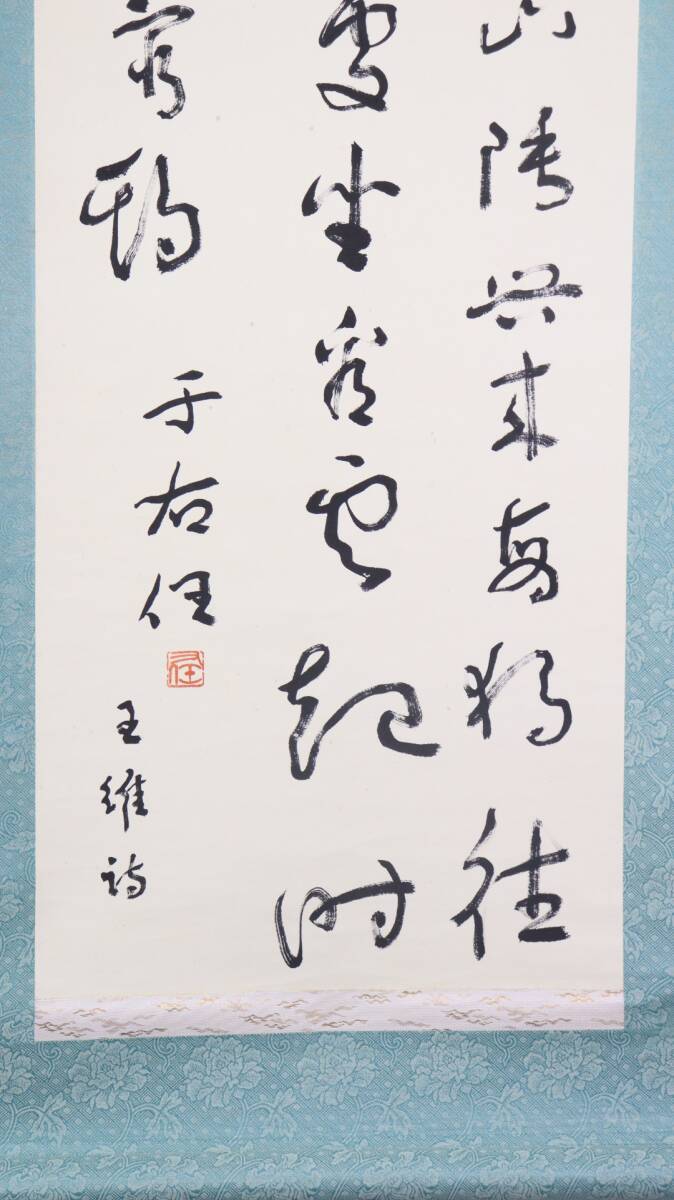 山陲興來每獨往
處坐看雲起時
還期
于右任
右任
王維詩